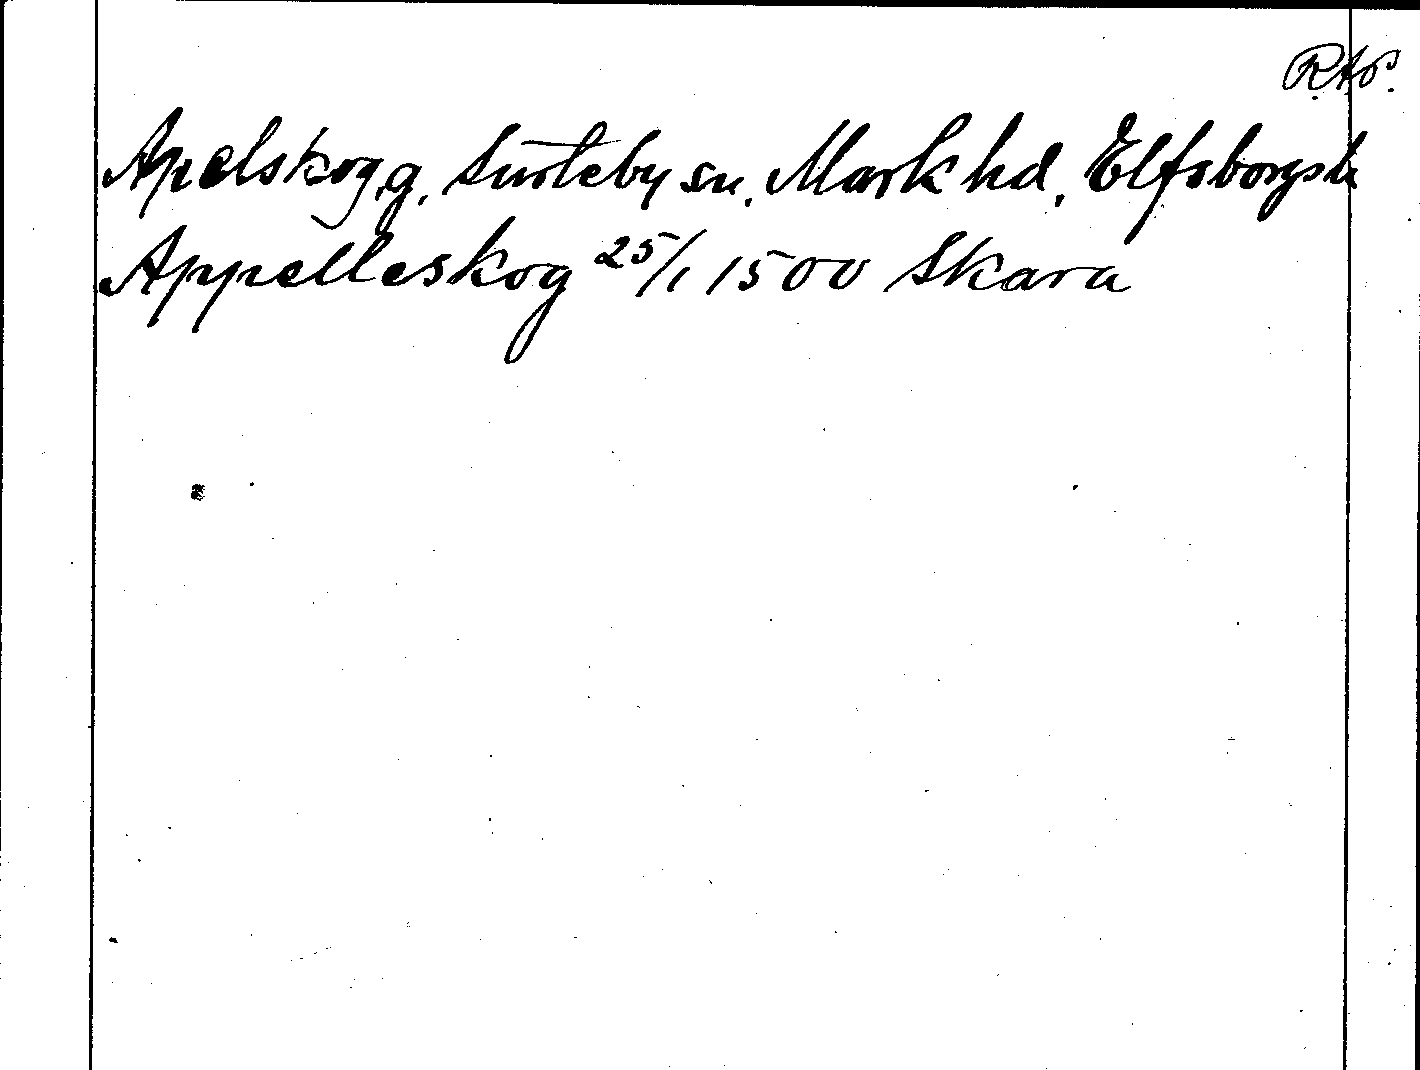 R.A.P.
Apelskog, g. Surteby sn. Mark hd. Elfsborgs l.
Appelleskog 25/1 1500 Skara